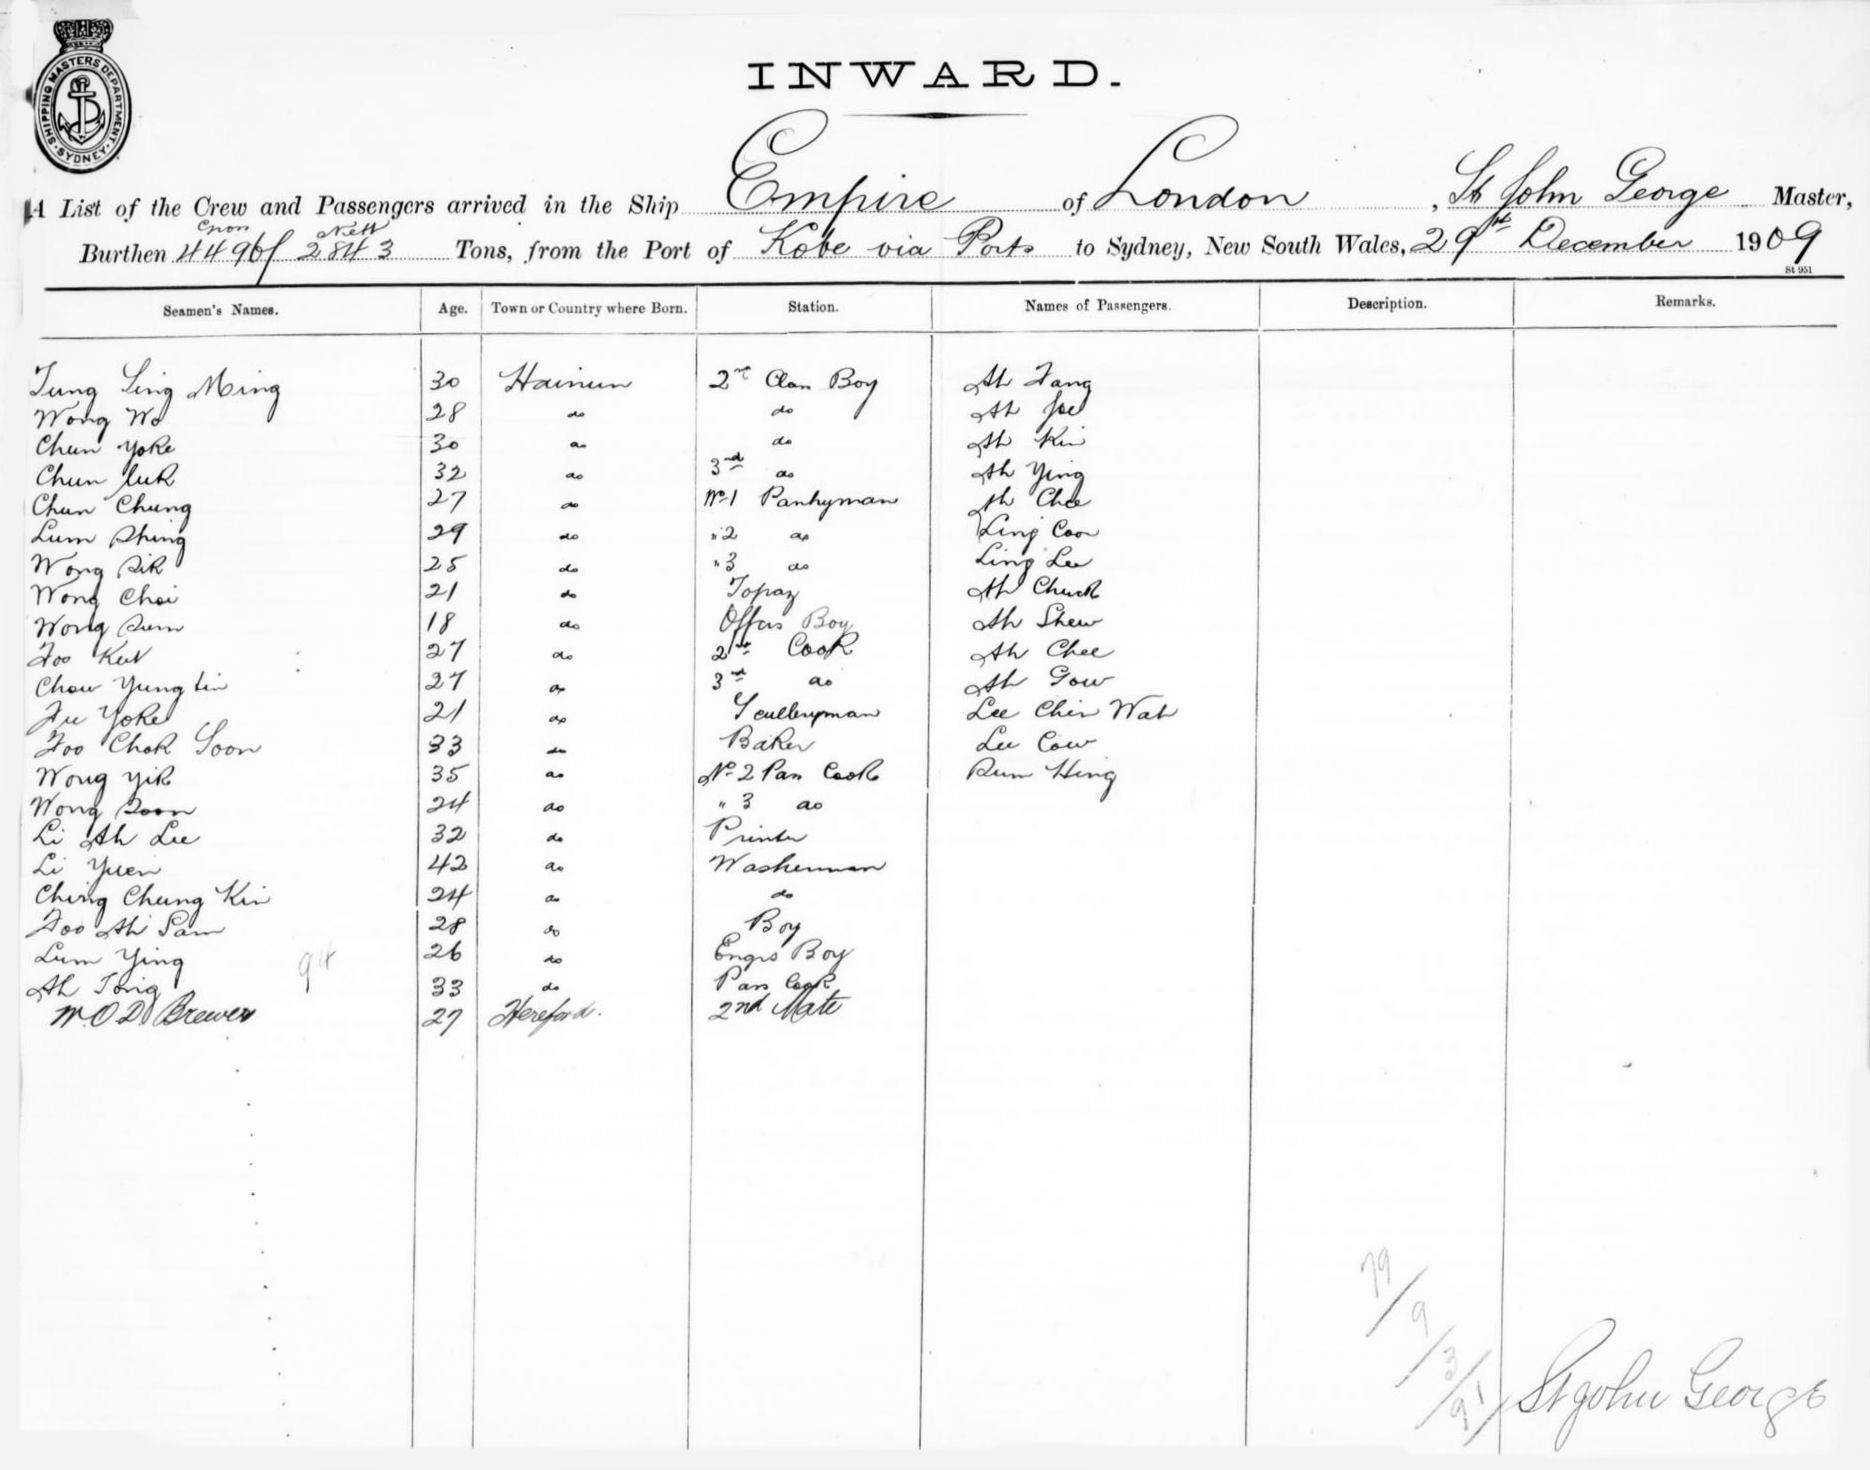 SHIPPING MASTERS DEPARTMENT
SYDNEY
INWARD.
A List of the Crew and Passengers arrived in the Ship Empire of London, St John George Master,
Gross Nett
Burthen 4496 2843 Tons, from the Port of Kobe via Ports to Sydney, New South Wales, 29th December 1909
St 951
Seamen's Names. Age. Town or Country where Born. Station. Names of Passengers. Description. Remarks.
Tung Sing Ming 30 Hainun 2nd Clan Boy Ah Fang
Wong Wo 28 do do Ah Joe
Chun Yoke 30 do do Ah Kin
Chun Luk 32 do 3rd do Ah Ying
Chun Chung 27 do No 1 Pantryman Ah Chee
Lum Shing 29 do " 2 do Ling Coon
Wong Sik 25 do " 3 do Ling Lee
Wong Choi 21 do Topaz Ah Chuck
Wong Sum 18 do Offrs Boy Ah Shew
Foo Kut 27 do 2nd Cook Ah Chee
Chow Yung Lin 27 do 3rd do Ah Gow
Fu Yoke 21 do Sculleryman Lee Chin Wah
Foo Chok Soon 33 do Baker Lee Cow
Wong Yik 35 do No 2 Pan Cook Sum Hing
Wong Soon 24 do " 3 do
Li Ah Lee 32 do Printer
Li Yuen 42 do Washerman
Ching Chung Kin 24 do do
Foo Ah Sam 28 do Boy
Lum Ying 26 do Engrs Boy
94
Ah Tong 33 do Pan Cook
W. O. D. Brewer 27 Hereford. 2nd Mate
79/9/3/91
St John George